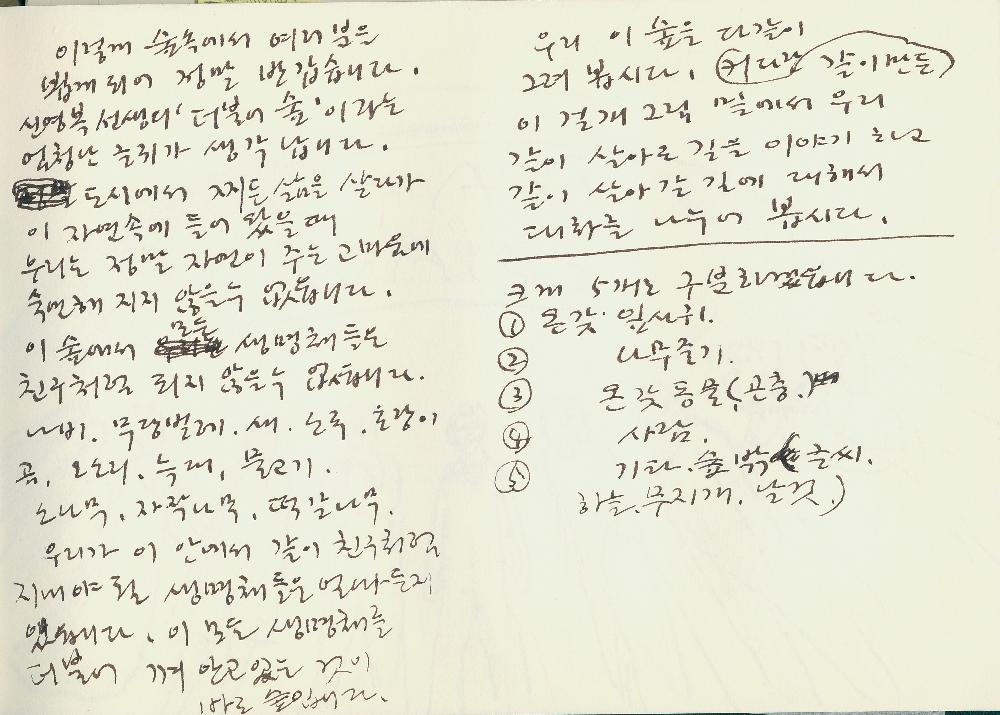 이렇게 숲속에서 여러분을
뵙게 되어 정말 반갑습니다.
신영복 선생의 '더불어 숲' 이라는
엄청난 글귀가 생각 납니다.
도시에서 찌든 삶을 살다가
이 자연속에 들어 왔을 때
우리는 정말 자연이 주는 고마움에
숙연해 지지 않을 수 없습니다.
이 숲에서 모든 생명체들과
친구처럼 되지 않을 수 없습니다.
나비. 무당벌레. 새. 순록. 호랑이
곰, 오소리. 늑대, 물고기.
소나무, 자작나무, 떡갈나무.
우리가 이 안에서 같이 친구처럼
지내야 할 생명체들은 얼마든지
있습니다. 이 모든 생명체를
더불어 껴안고 있는 것이
바로 숲입니다.
우리 이 숲을 다같이
그려 봅시다. 커다란 같이 만든
이 걸개 그림 밑에서 우리
같이 살아온 길을 이야기 하고
같이 살아 갈 길에 대해서
대화를 나누어 봅시다.
크게 5개로 구분하겠습니다.
① 온갖 잎사귀.
② 나무줄기.
③ 온갖 동물(곤충.)
④ 사람.
⑤ 기타. 숲 밖 (글씨.
하늘. 무지개. 날것.)